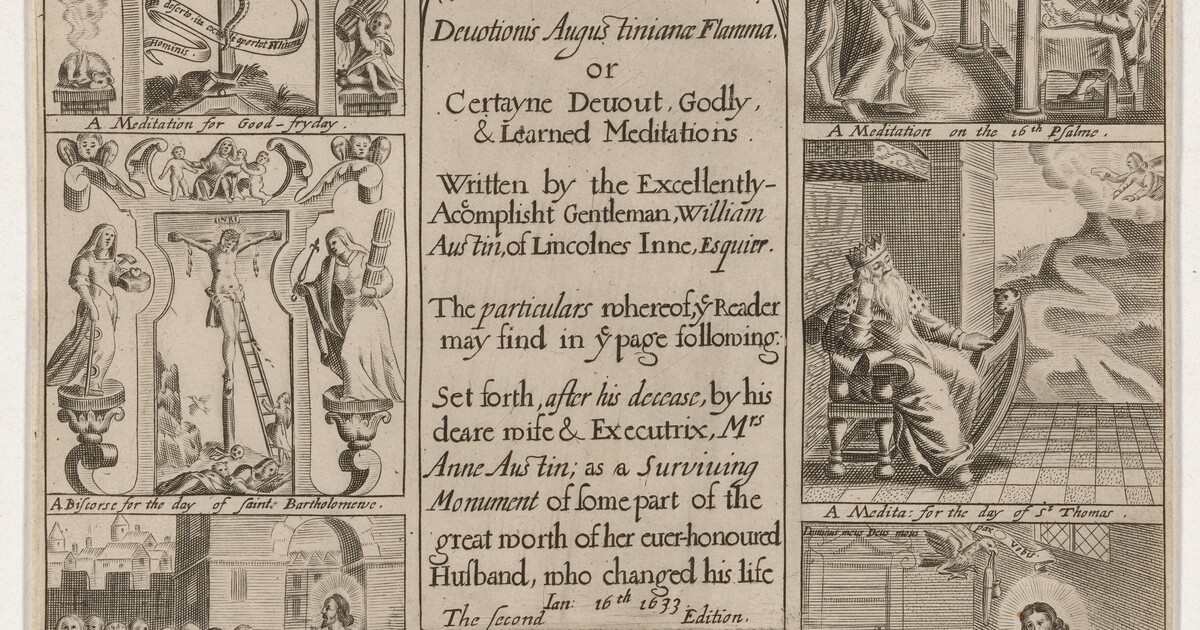 diserto, ita
Hominis.
oportet
A Meditation for Good-fryday.
INRI
A Discorse for the day of saint: Bartholomewe.
Deuotionis Augustinianæ Flamma.
or
Certayne Deuout, Godly,
& Learned Meditations.
Written by the Excellently-
Acomplisht Gentleman, William
Austin, of Lincolnes Inne, Esquier.
The particulars whereof, yᵉ Reader
may find in yᵉ page following:
Set forth, after his decease, by his
deare wife & Executrix, Mʳˢ
Anne Austin; as a Surviuing
Monument of some part of the
great worth of her euer-honoured
Husband, who changed his life
Ian: 16ᵗʰ 1633.
The second Edition.
A Meditation on the 16ᵗʰ Psalme.
A Medita: for the day of Sᵗ Thomas.
Dominus meus Deus meus
pax vobis